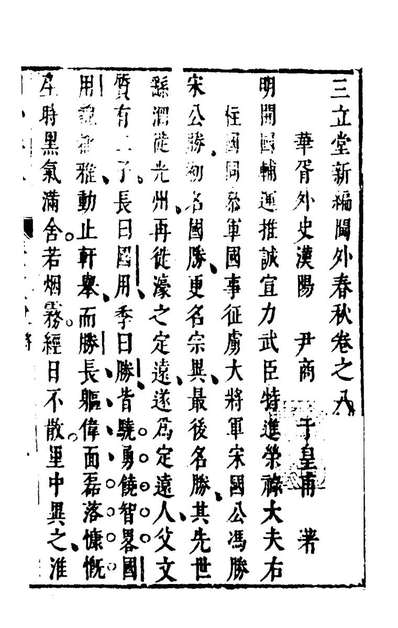 三立堂新編閫外春秋卷之八
華胥外史漢陽 尹商 于皇甫 著
明開國輔運推誠宣力武臣特進榮祿大夫右
柱國同叅軍國事征虜大將軍宋國公馮勝
宋公勝初名國勝更名宗異最後名勝其先世
孫潤徙光州再徙濠之定遠遂爲定遠人父文
質有二子長曰國用季曰勝皆驍勇饒智畧國
用 雅動止軒舉而勝長軀偉面磊落慷慨
生時黑氣滿舍若烟霧經日不散里中異之淮